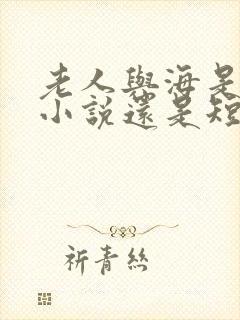 老人與海是
小說還是短
祈青絲